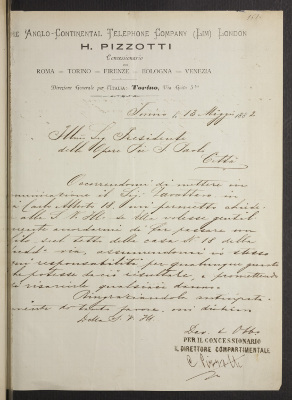 Anglo-Continental Telephone Company (Lim) London
H. PIZZOTTI
Concessionario
PER
ROMA — TORINO — FIRENZE — BOLOGNA — VENEZIA
Direzione Generale per l'Italia: Torino, Via
Torino, 14 Maggio
Ill.mo Sig Presidente
dell' Opere Pie S. Paolo
Città
Occorrendomi di mettere in
comunicazione il Sig.
Carlo Alberto 18, mi permetto
alla S. V. Ill. se Ella volesse gentil
mente di far passare un
filo sul tetto della casa N. 18 della
via, assumendomi io stesso
ogni responsabilità per qualunque guasto
che potesse risultare, e promettendo
di qualsiasi danno.
Ringraziandola anticipata-
mente di tanto favore, mi dichiaro
Della S. V. Ill
Dev.
PER IL CONCESSIONARIO
IL DIRETTORE COMPARTIMENTALE